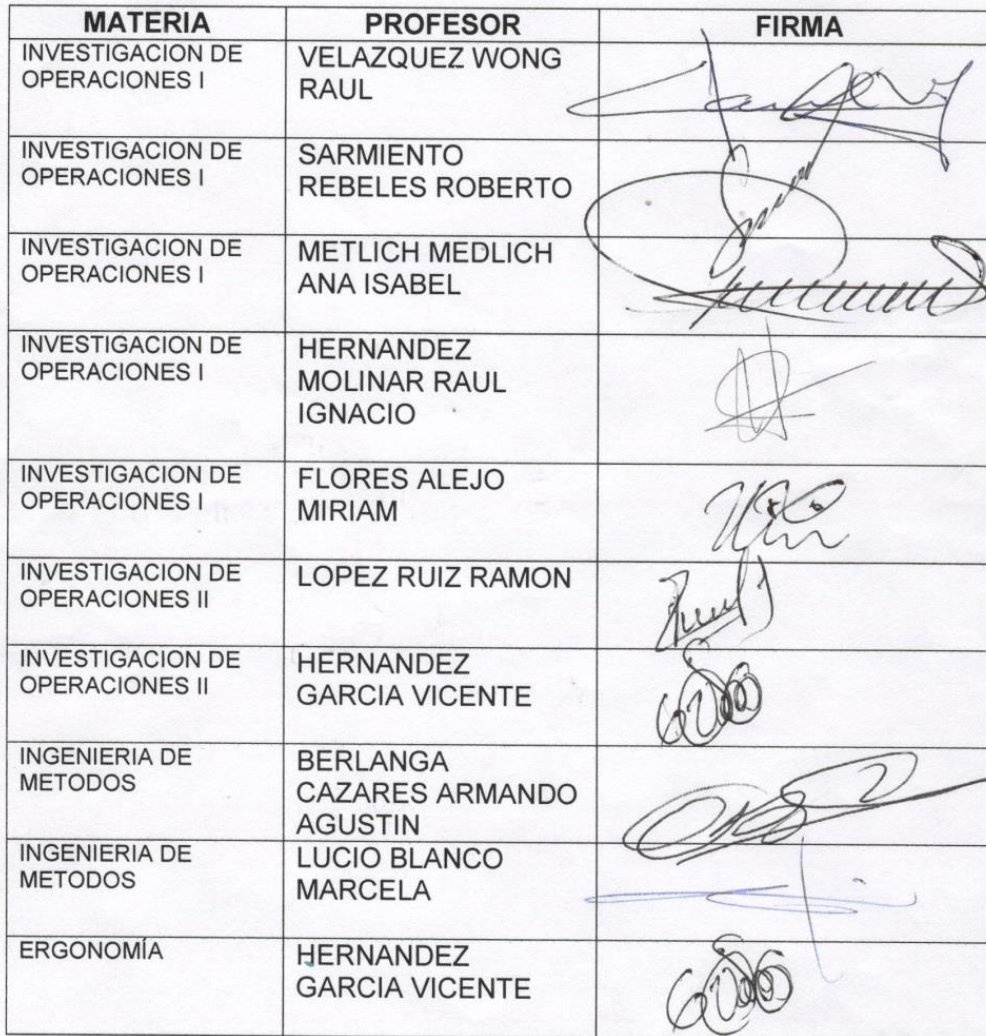 MATERIA PROFESOR FIRMA
INVESTIGACION DE
OPERACIONES I
VELAZQUEZ WONG
RAUL
INVESTIGACION DE
OPERACIONES I
SARMIENTO
REBELES ROBERTO
INVESTIGACION DE
OPERACIONES I
METLICH MEDLICH
ANA ISABEL
INVESTIGACION DE
OPERACIONES I
HERNANDEZ
MOLINAR RAUL
IGNACIO
INVESTIGACION DE
OPERACIONES I
FLORES ALEJO
MIRIAM
INVESTIGACION DE
OPERACIONES II
LOPEZ RUIZ RAMON
INVESTIGACION DE
OPERACIONES II
HERNANDEZ
GARCIA VICENTE
INGENIERIA DE
METODOS
BERLANGA
CAZARES ARMANDO
AGUSTIN
INGENIERIA DE
METODOS
LUCIO BLANCO
MARCELA
ERGONOMÍA
HERNANDEZ
GARCIA VICENTE